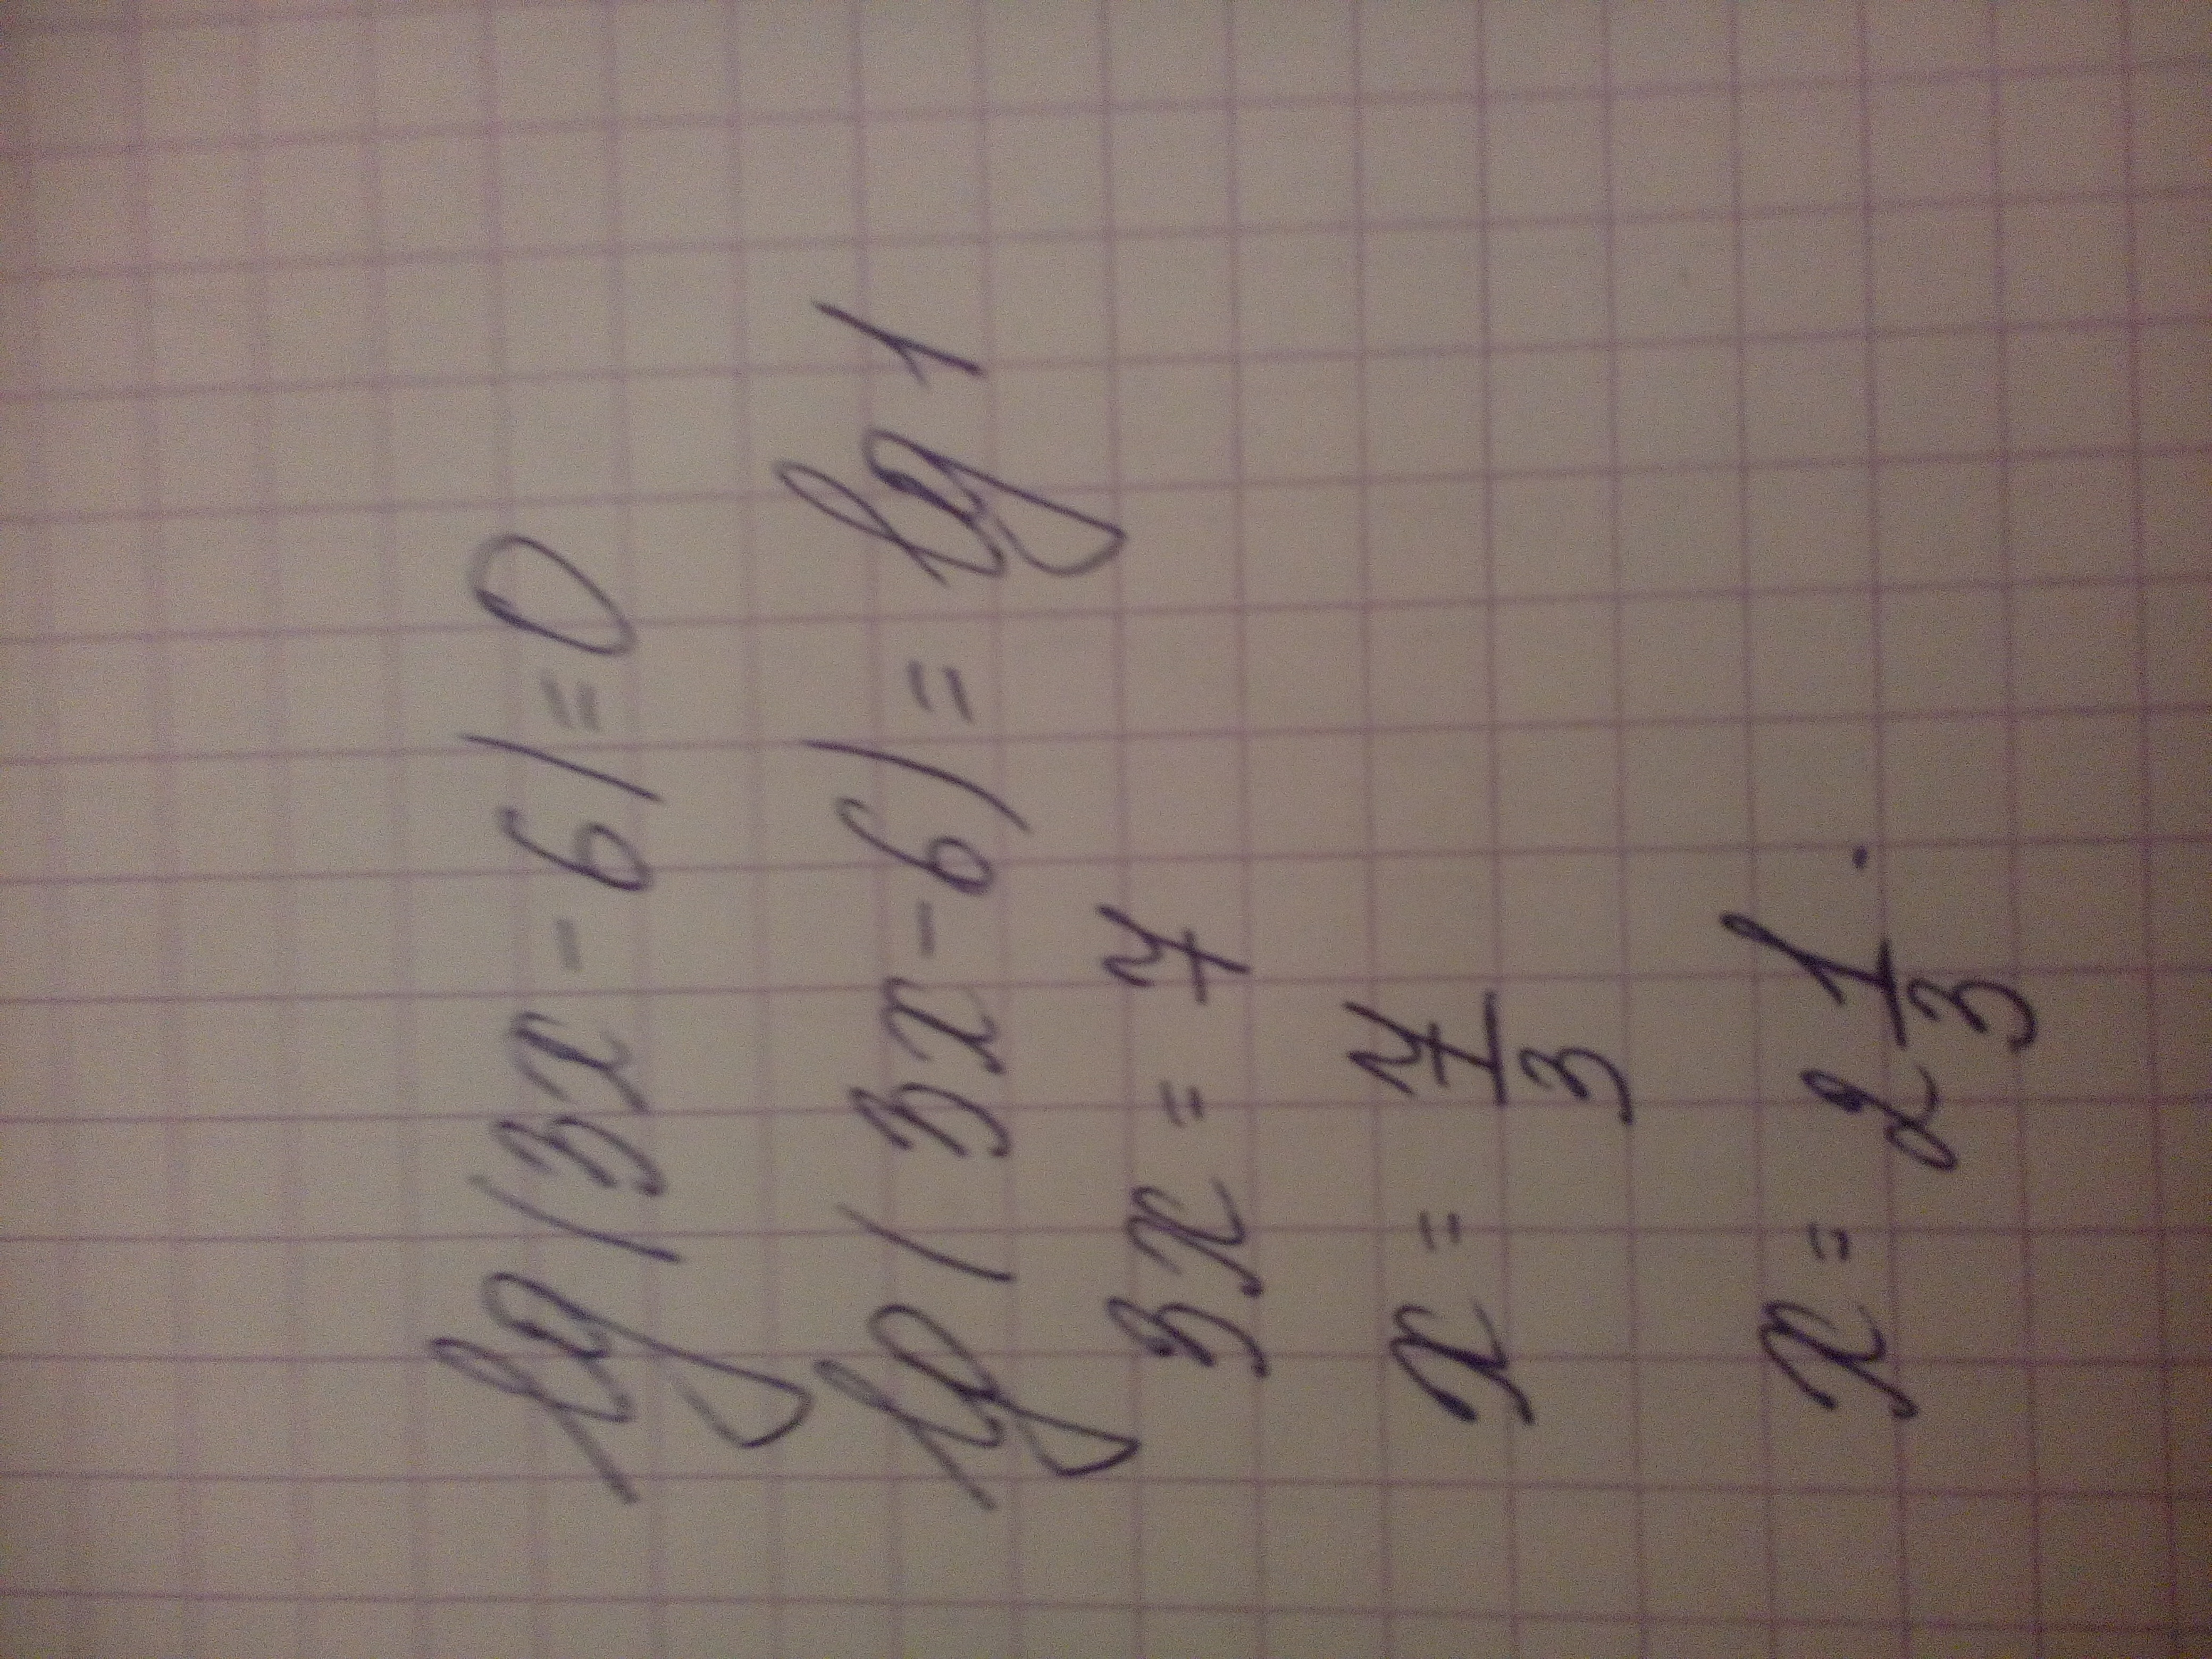 lg(3x-6)=0
lg(3x-6)=lg1
3x=7
x=7/3
x=2 1/3.